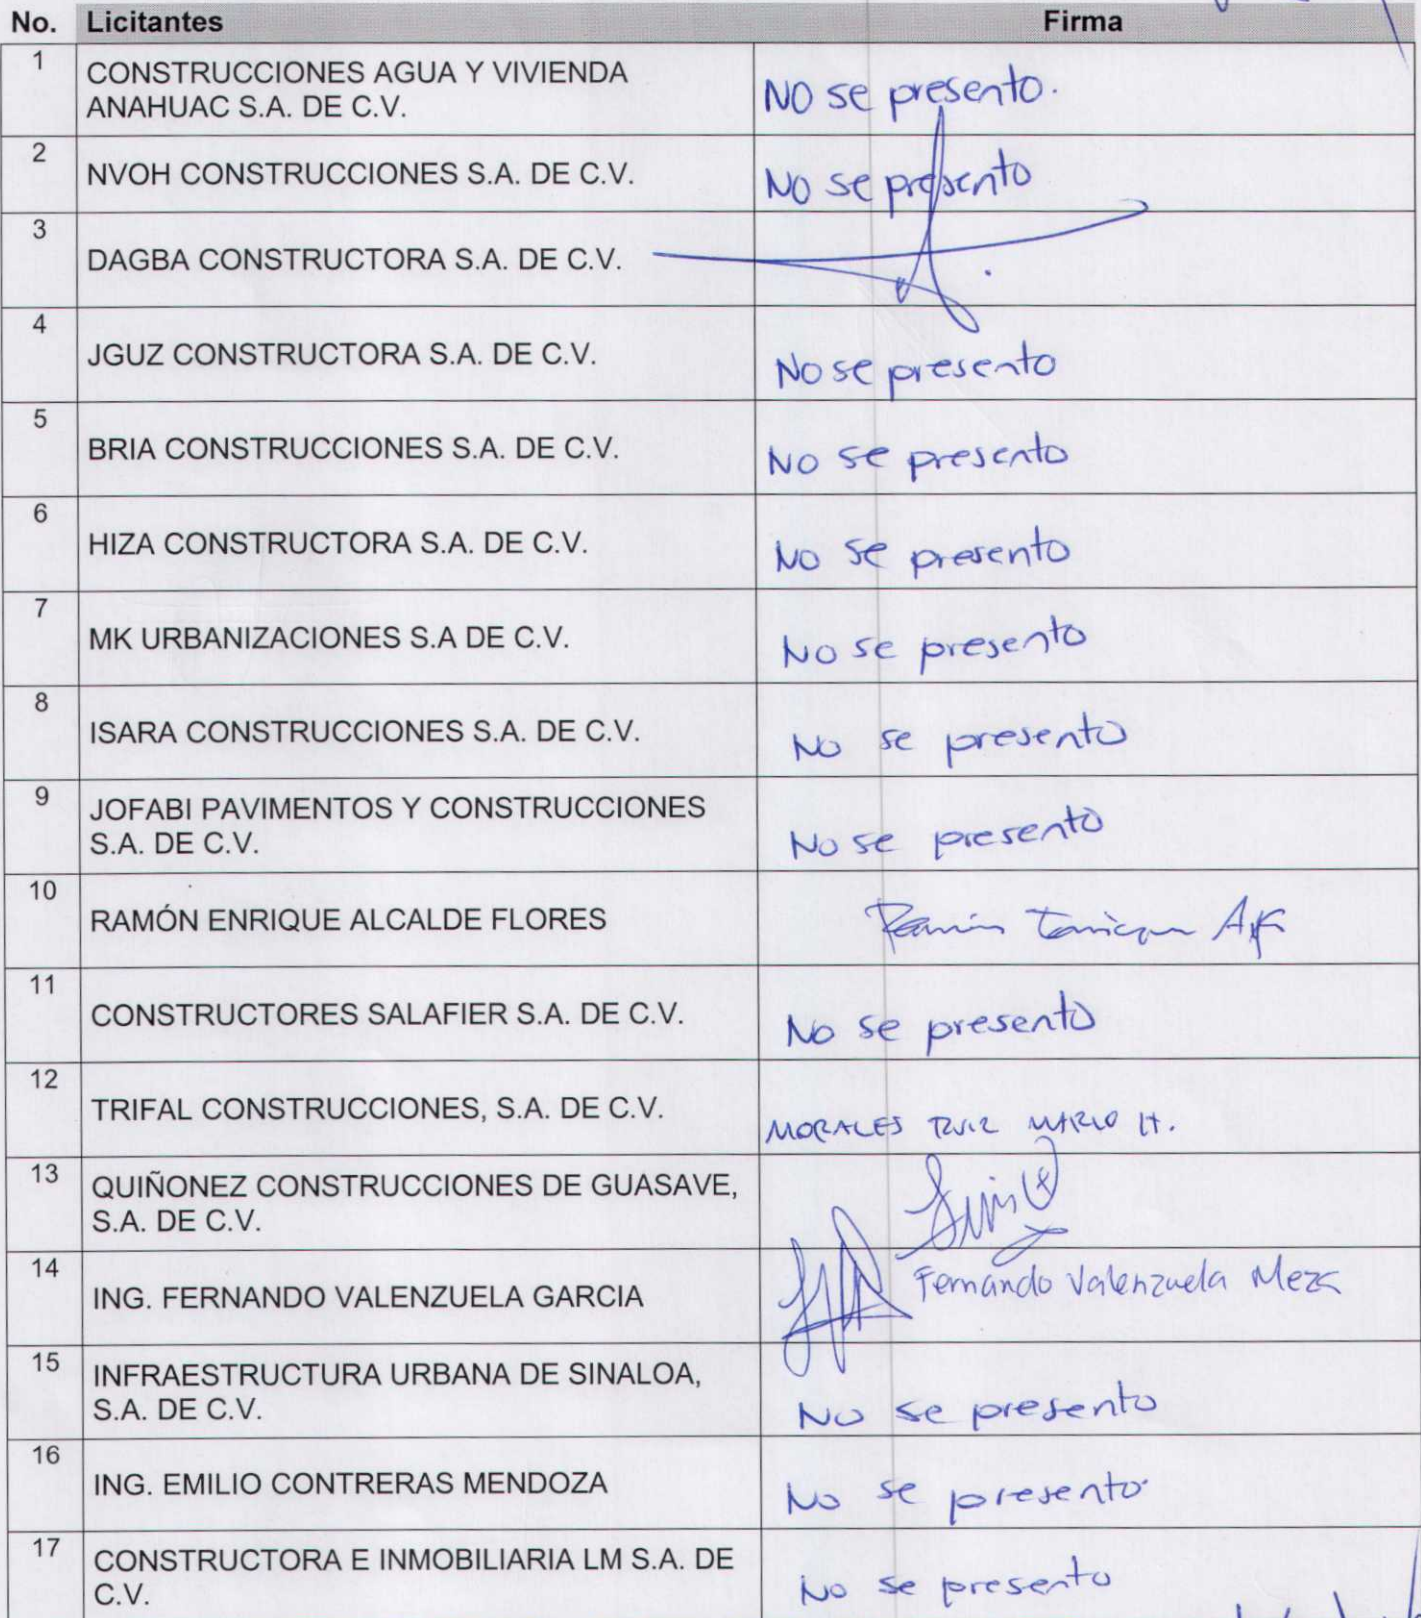 No. Licitantes Firma
1 CONSTRUCCIONES AGUA Y VIVIENDA
ANAHUAC S.A. DE C.V. NO se presento.
2 NVOH CONSTRUCCIONES S.A. DE C.V. No se presento
3 DAGBA CONSTRUCTORA S.A. DE C.V.
4 JGUZ CONSTRUCTORA S.A. DE C.V. No se presento
5 BRIA CONSTRUCCIONES S.A. DE C.V. No se presento
6 HIZA CONSTRUCTORA S.A. DE C.V. No se presento
7 MK URBANIZACIONES S.A DE C.V. No se presento
8 ISARA CONSTRUCCIONES S.A. DE C.V. No se presento
9 JOFABI PAVIMENTOS Y CONSTRUCCIONES
S.A. DE C.V. No se presento
10 RAMÓN ENRIQUE ALCALDE FLORES
11 CONSTRUCTORES SALAFIER S.A. DE C.V. No se presento
12 TRIFAL CONSTRUCCIONES, S.A. DE C.V. MORALES RUIZ MARIO H.
13 QUIÑONEZ CONSTRUCCIONES DE GUASAVE,
S.A. DE C.V. Luis
14 ING. FERNANDO VALENZUELA GARCIA Fernando Valenzuela Meza
15 INFRAESTRUCTURA URBANA DE SINALOA,
S.A. DE C.V. No se presento
16 ING. EMILIO CONTRERAS MENDOZA No se presento
17 CONSTRUCTORA E INMOBILIARIA LM S.A. DE
C.V. No se presento